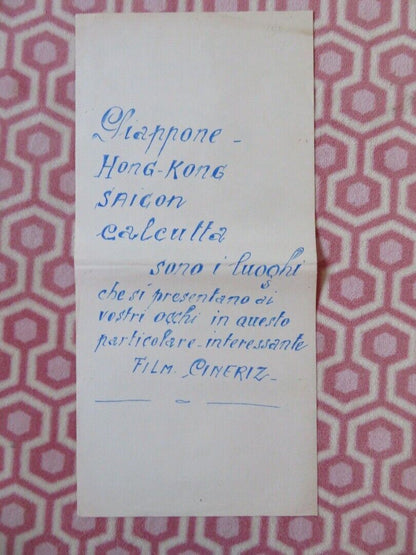 Giappone -
HONG-KONG
SAIGON
calcutta
sono i luoghi
che si presentano ai
vostri occhi in questo
particolare - interessante
FILM CINERIZ -